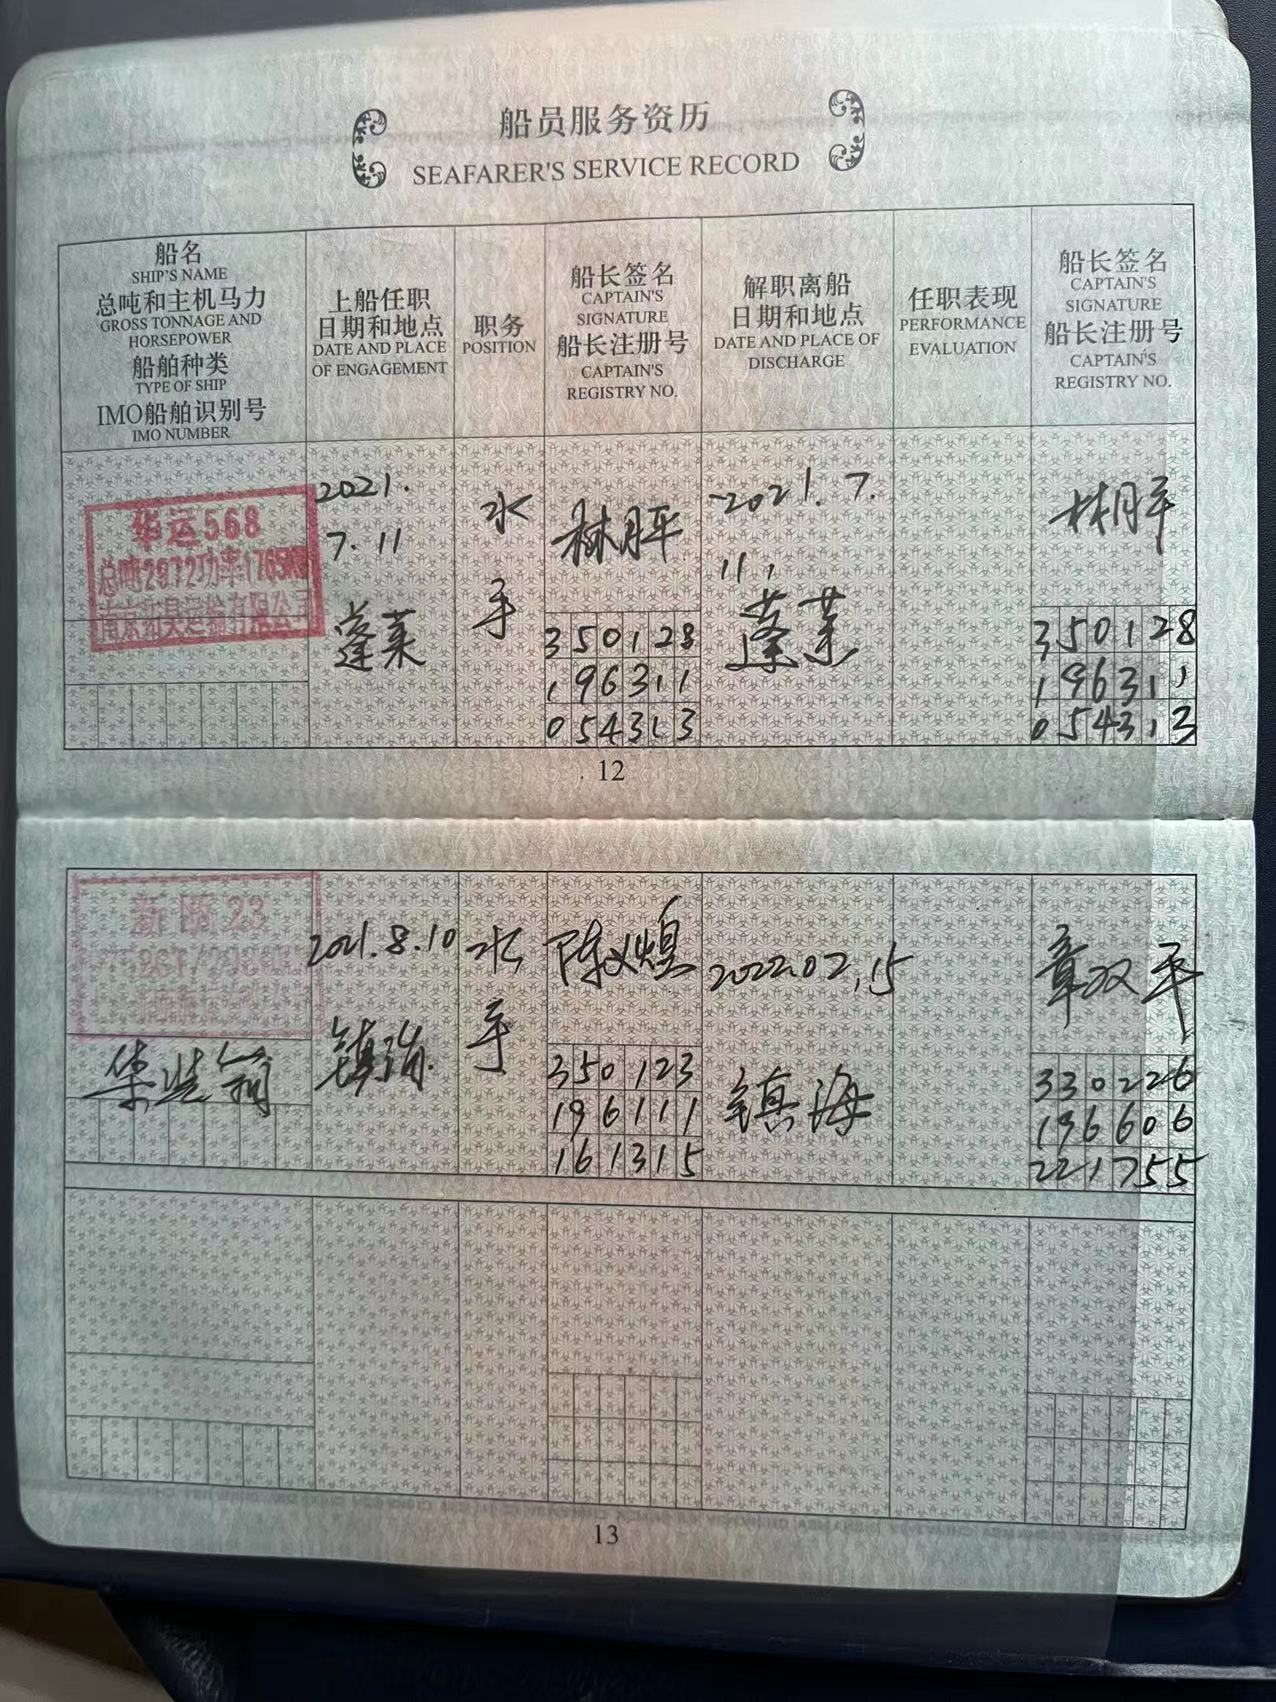 船员服务资历
SEAFARER'S SERVICE RECORD
船名
SHIP'S NAME
总吨和主机马力
GROSS TONNAGE AND
HORSEPOWER
船舶种类
TYPE OF SHIP
IMO船舶识别号
IMO NUMBER
上船任职
日期和地点
DATE AND PLACE
OF ENGAGEMENT
职务
POSITION
船长签名
CAPTAIN'S
SIGNATURE
船长注册号
CAPTAIN'S
REGISTRY NO.
解职离船
日期和地点
DATE AND PLACE OF
DISCHARGE
任职表现
PERFORMANCE
EVALUATION
船长签名
CAPTAIN'S
SIGNATURE
船长注册号
CAPTAIN'S
REGISTRY NO.
华运568
总吨2972功率1765
运输有限公司
2021.
7.11
蓬莱
水
手
林月平
350128
196311
054313
2021.7.
11,
蓬莱
林月平
350128
196311
054313
12
新 23
2021.8.10
镇海
水
手
陈义煌
350123
196111
161315
2022.02,15
镇海
章双平
330226
196606
221755
13